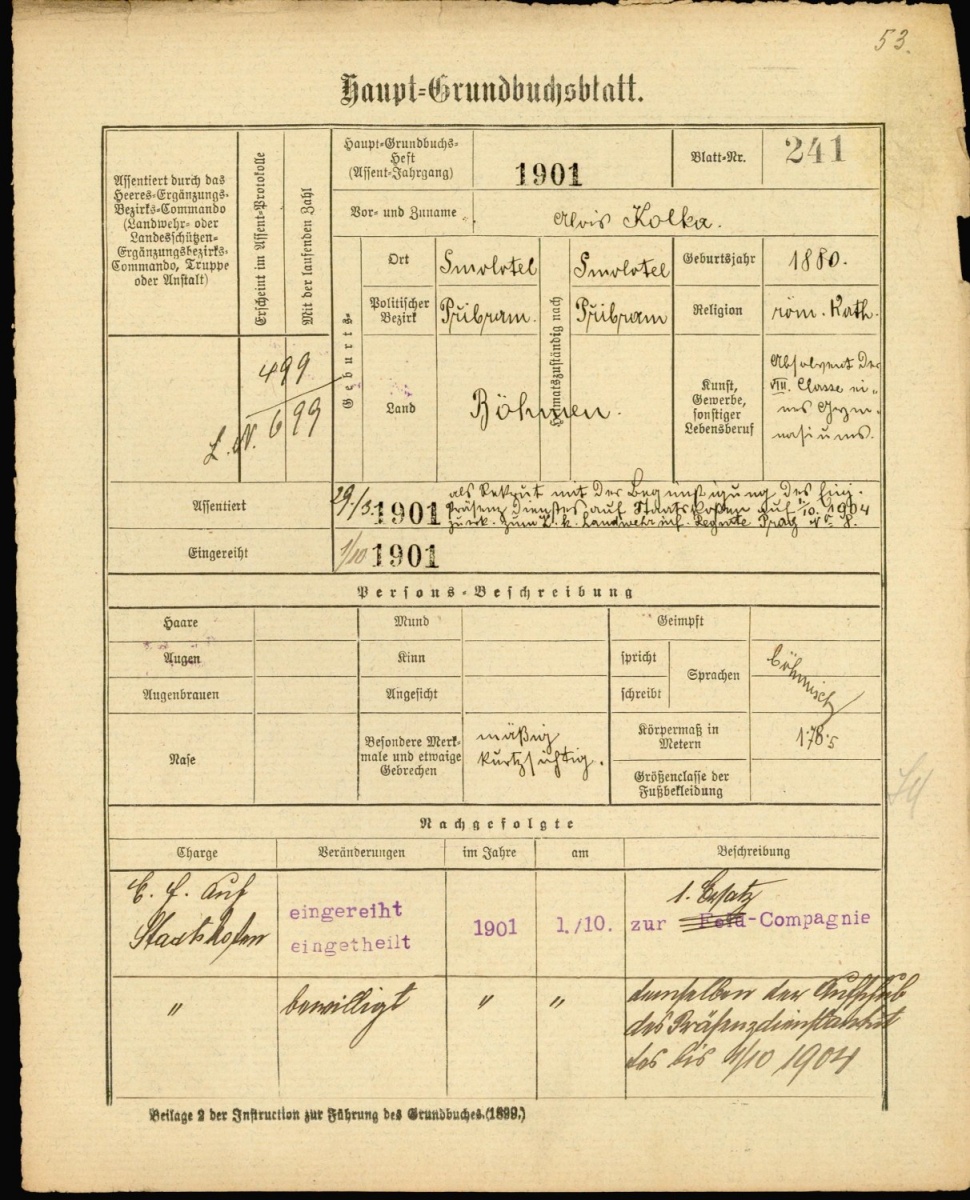 53.
Haupt-Grundbuchsblatt.
Assentiert durch das
Heeres-Ergänzungs-
Bezirks-Commando
(Landwehr- oder
Landesschützen-
Ergänzungsbezirks-
Commando, Truppe
oder Anstalt)
Erscheint im Assent-Protokolle
Mit der laufenden Zahl
499
L. N. 699
Haupt-Grundbuchs-
Heft
(Assent-Jahrgang)
1901
Blatt-Nr.
241
Vor- und Zuname
Alois Kolka.
Geburts-
Ort
Smolotel
Heimatszuständig nach
Smolotel
Geburtsjahr
1880.
Politischer
Bezirk
Přibram.
Přibram
Religion
röm. Kath.
Land
Böhmen.
Kunst,
Gewerbe,
sonstiger
Lebensberuf
Absolvent der
VIII. Classe ei-
nes Gym-
nasiums.
Assentiert
29./3. 1901
als Rekrut mit der Begünstigung des Einj.
Präsenzdienstes auf Staatskosten auf 1/10. 1904
zum k. k. Landwehrinf. Regmte Prag No 8.
Eingereiht
1/10 1901
Persons-Beschreibung
Haare
Mund
Geimpft
Augen
Kinn
spricht
Sprachen
böhmisch
Augenbrauen
Angesicht
schreibt
Nase
Besondere Merk-
male und etwaige
Gebrechen
mäßig
kurtzsichtig.
Körpermaß in
Metern
1·78·5
Größenclasse der
Fußbekleidung
Nachgefolgte
Charge
Veränderungen
im Jahre
am
Beschreibung
E. f. auf
Staatskosten
eingereiht
eingetheilt
1901
1./10.
1. Ersatz
zur Feld-Compagnie
"
bewilligt
"
"
demselben der Aufschub
des Präsenzdienstantrit
tes bis 1/10 1904
Beilage 2 der Instruction zur Führung des Grundbuches.(1899.)